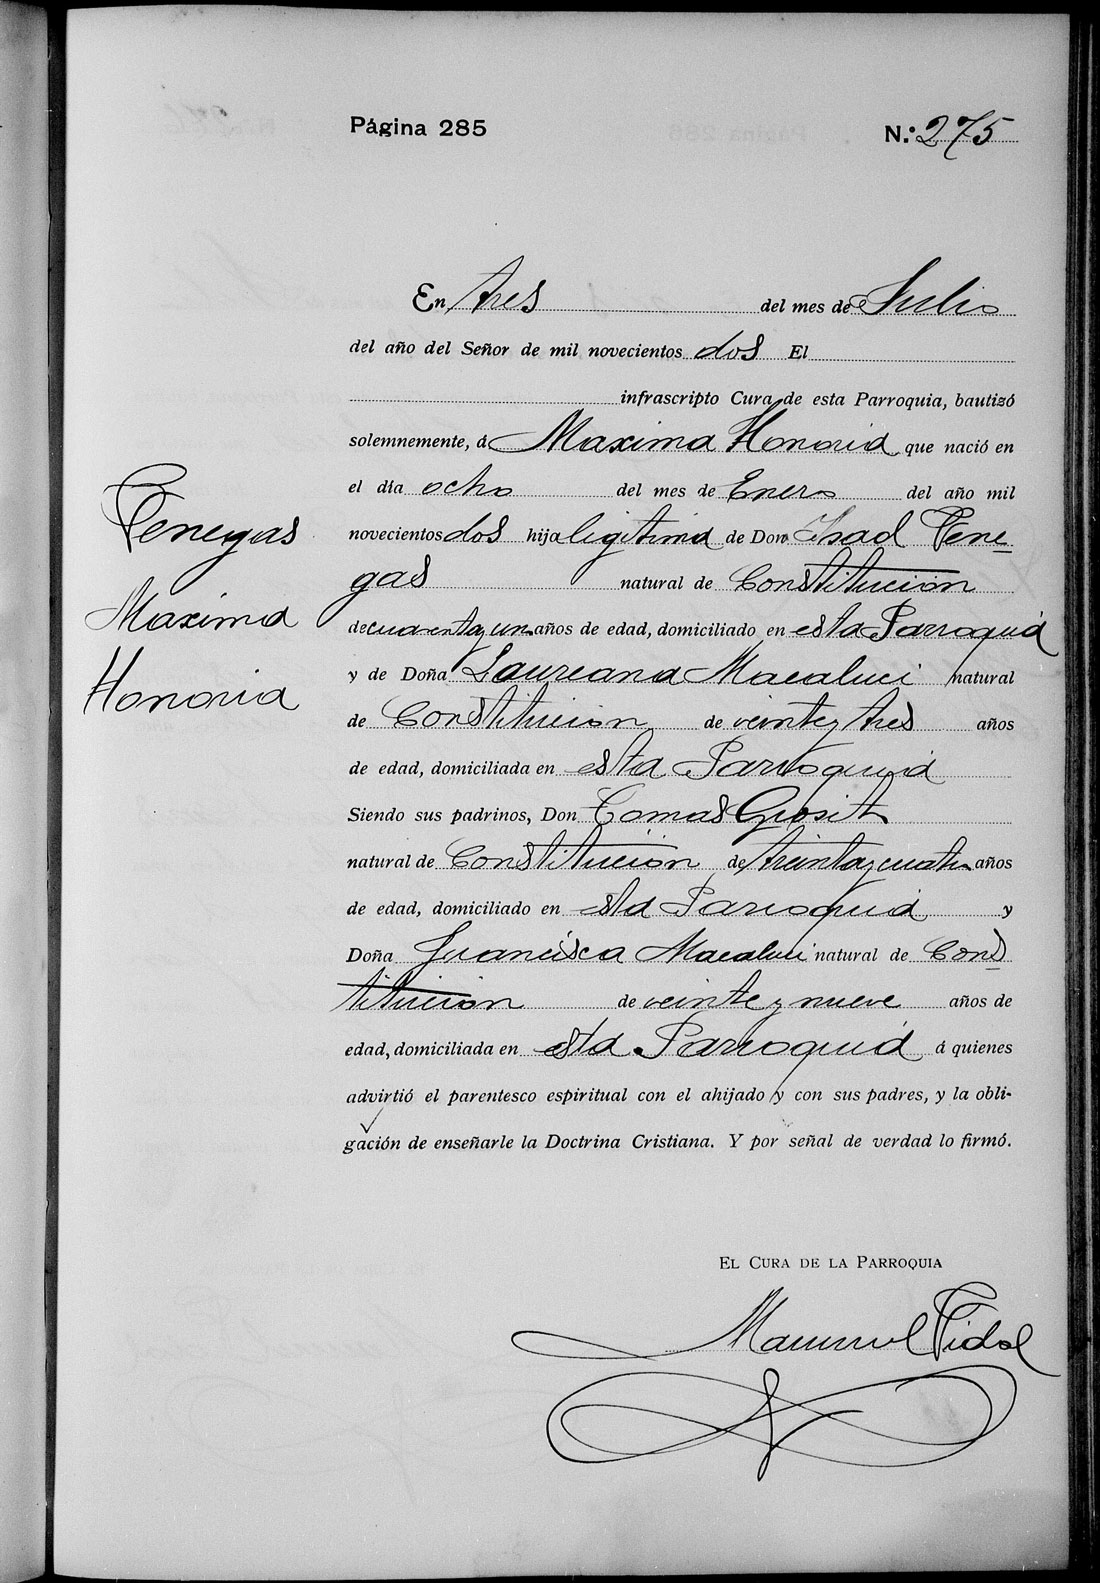 Página 285
N.º 275
En tres del mes de Julio
del año del Señor de mil novecientos dos El
infrascripto Cura de esta Parroquia, bautizó
solemnemente, á Maxima Honoria que nació en
el día ocho del mes de Enero del año mil
novecientos dos hija legitima de Don Isad Vene=
gas natural de Constitucion
de cuarenta y un años de edad, domiciliado en esta Parroquia
y de Doña Laureana Macaluci natural
de Constitucion de veinte y tres años
de edad, domiciliada en esta Parroquia
Siendo sus padrinos, Don Tomas
natural de Constitucion de treinta y cuatro años
de edad, domiciliado en esta Parroquia y
Doña Francisca Macaluci natural de Cons=
titucion de veinte y nueve años de
edad, domiciliada en esta Parroquia á quienes
advirtió el parentesco espiritual con el ahijado y con sus padres, y la obli-
gación de enseñarle la Doctrina Cristiana. Y por señal de verdad lo firmó.
Venegas
Maxima
Honoria
EL CURA DE LA PARROQUIA
Manuel Vidal